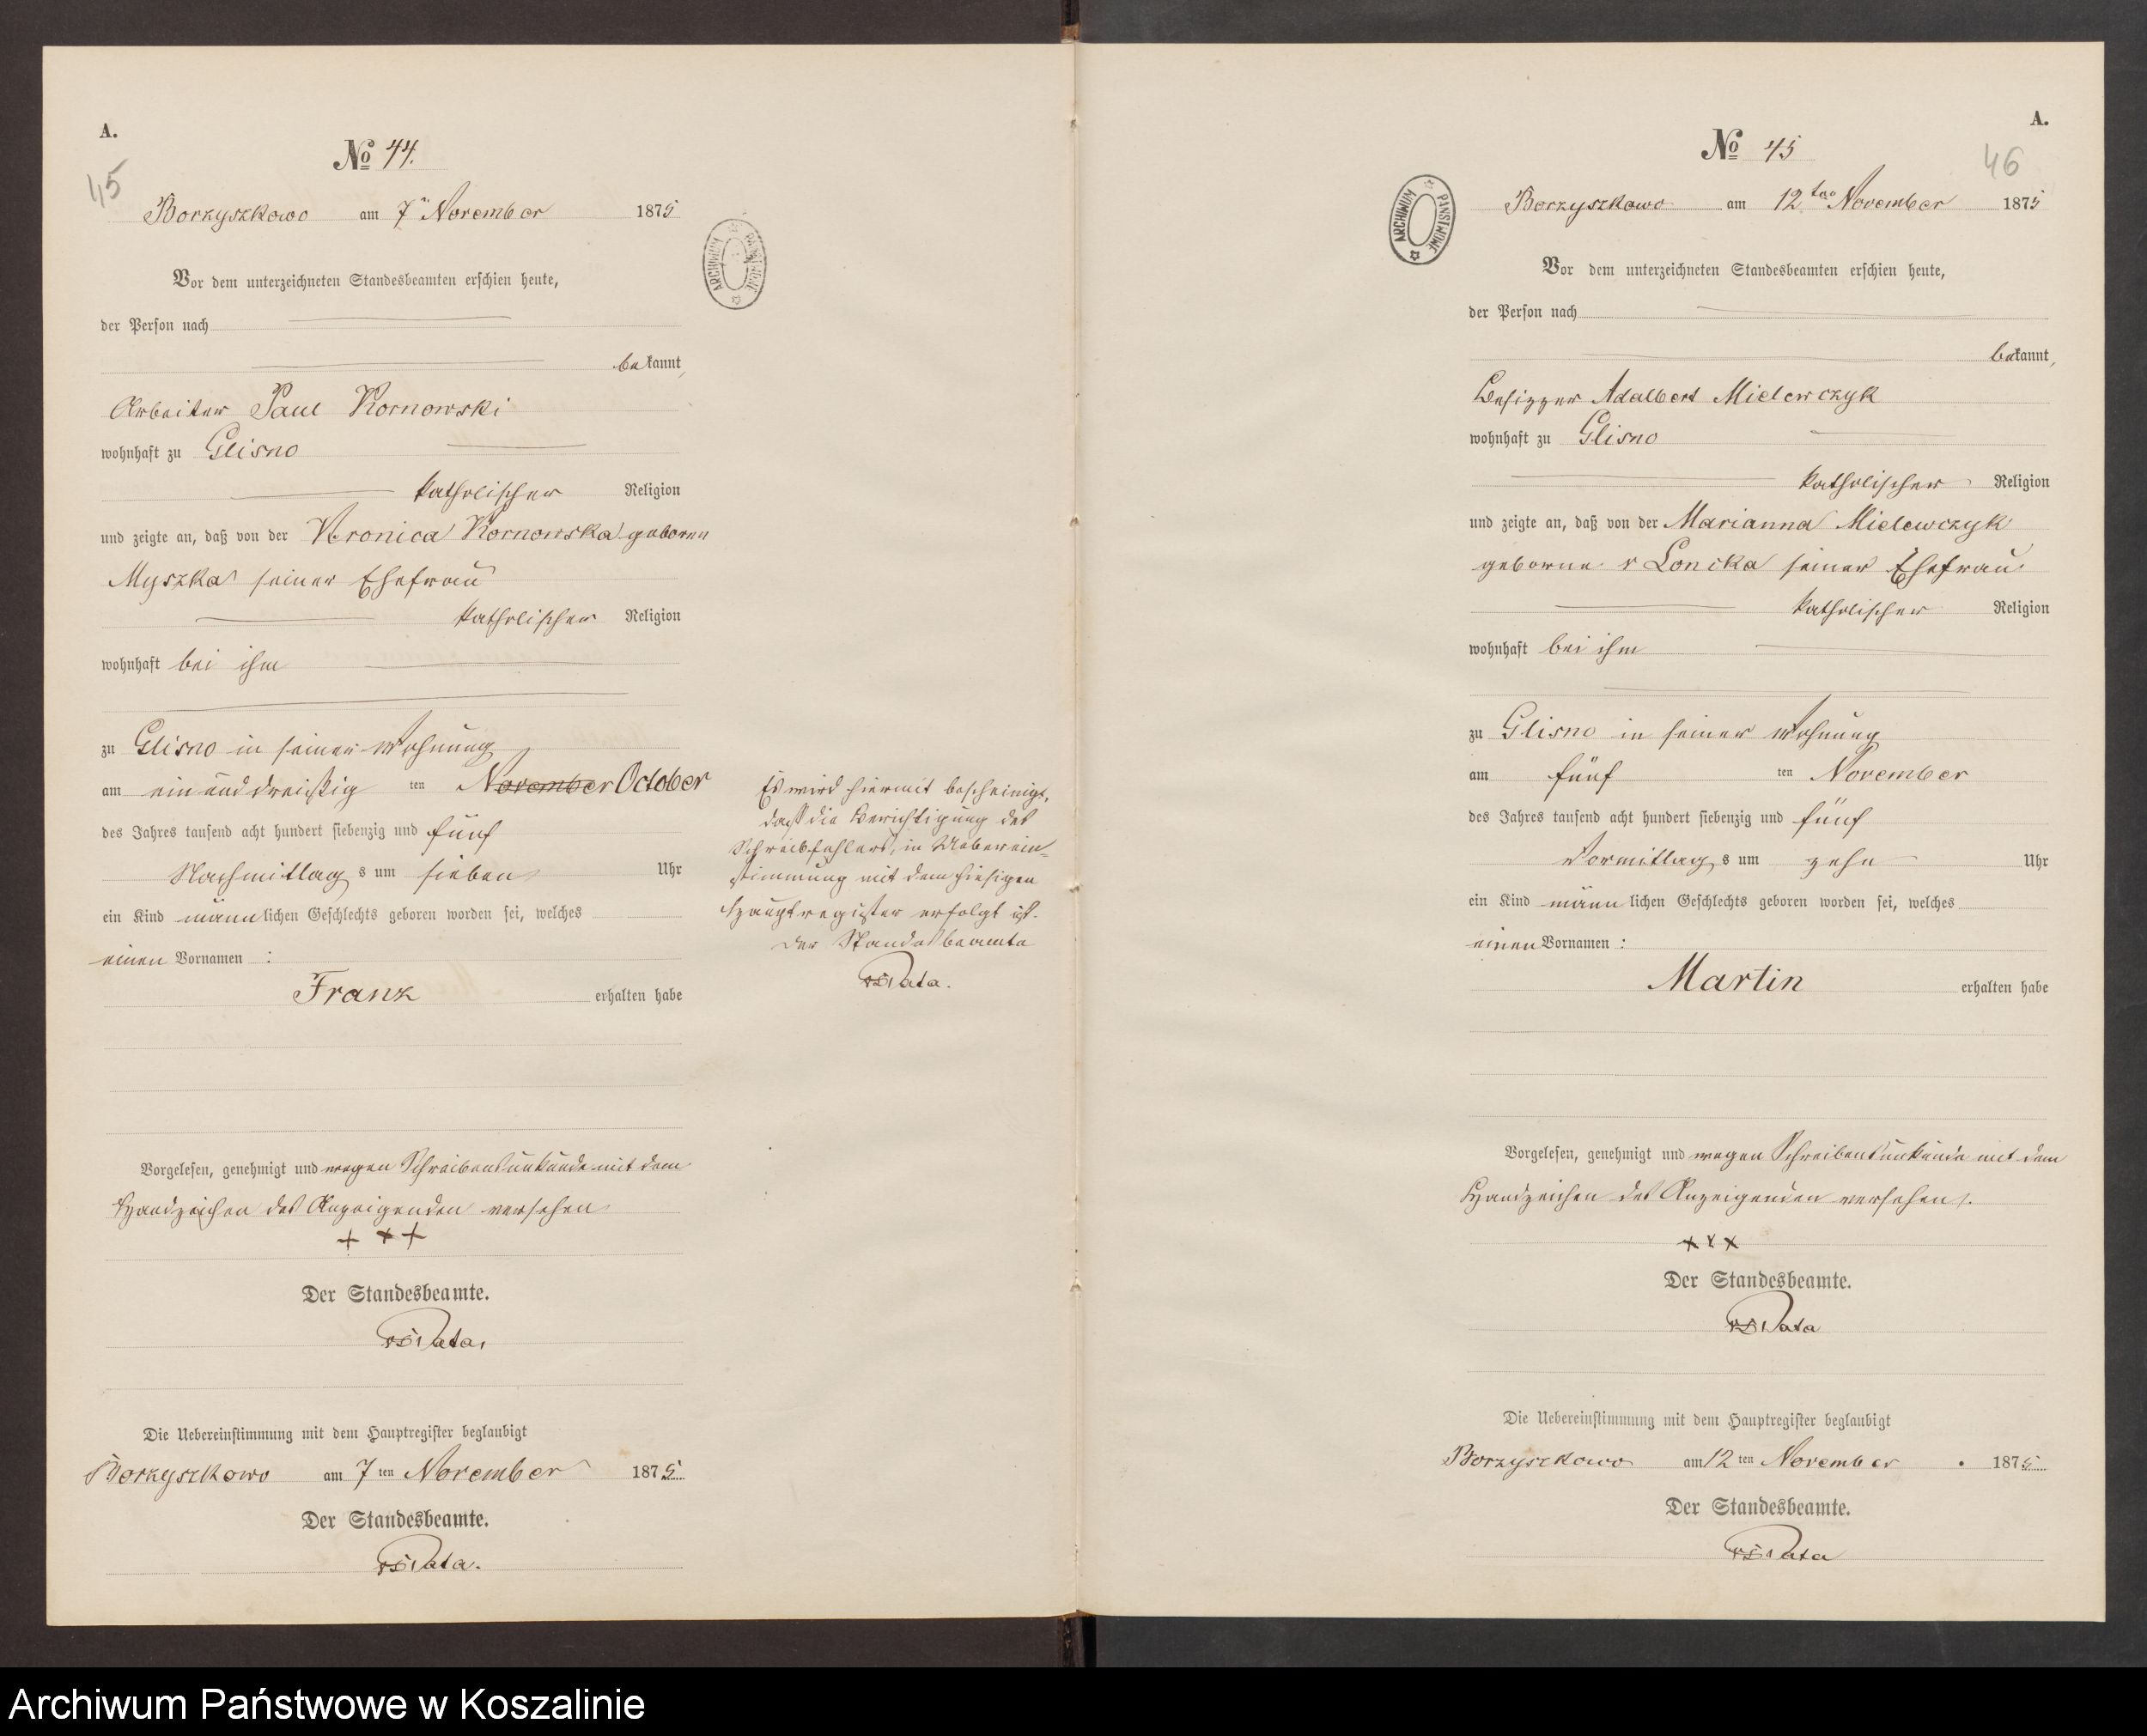 A.
No 44.
45
Borzyszkowo am 7ⁿ November 1875
Vor dem unterzeichneten Standesbeamten erschien heute,
der Person nach
bekannt,
Arbeiter Paul Kornowski
wohnhaft zu Glisno
katholischer Religion
und zeigte an, daß von der Veronica Kornowska geborne
Myszka seiner Ehefrau
katholischer Religion
wohnhaft bei ihm
zu Glisno in seiner Wohnung
am ein und dreißig ten November October
des Jahres tausend acht hundert siebenzig und fünf
Nachmittag s um sieben Uhr
ein Kind männlichen Geschlechts geboren worden sei, welches
einen Vornamen :
Franz erhalten habe
Vorgelesen, genehmigt und wegen Schreibensunkunde mit dem
Handzeichen des Anzeigenden versehen
+ + +
Der Standesbeamte.
Pata.
Die Uebereinstimmung mit dem Hauptregister beglaubigt
Borzyszkowo am 7 ten November 1875
Der Standesbeamte.
Pata.
ARCHIWUM PAŃSTWOWE
Es wird hiermit bescheinigt,
daß die Berichtigung des
Schreibfehlers, in Ueberein-
stimmung mit dem hiesigen
Hauptregister erfolgt ist.
Der Standesbeamte
Pata.
A.
No 45
46
ARCHIWUM PAŃSTWOWE
Borzyszkowo am 12 ten November 1875
Vor dem unterzeichneten Standesbeamten erschien heute,
der Person nach
bekannt,
Besitzer Adalbert Mielewczyk
wohnhaft zu Glisno
katholischer Religion
und zeigte an, daß von der Marianna Mielewczyk
geborne v Loncka seiner Ehefrau
katholischer Religion
wohnhaft bei ihm
zu Glisno in seiner Wohnung
am fünf ten November
des Jahres tausend acht hundert siebenzig und fünf
Vormittag s um zehn Uhr
ein Kind männlichen Geschlechts geboren worden sei, welches
einen Vornamen :
Martin erhalten habe
Vorgelesen, genehmigt und wegen Schreibensunkunde mit dem
Handzeichen des Anzeigenden versehen.
x x x
Der Standesbeamte.
Pata
Die Uebereinstimmung mit dem Hauptregister beglaubigt
Borzyszkowo am 12 ten November . 1875
Der Standesbeamte.
Pata
Archiwum Państwowe w Koszalinie